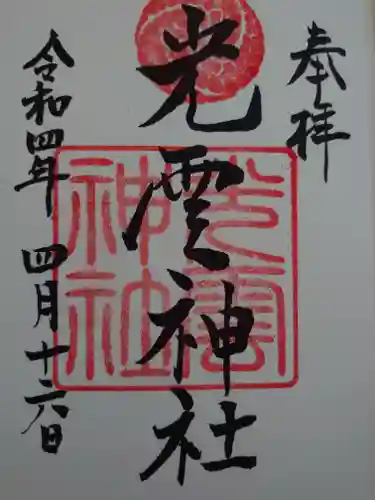 奉拝
光雲神社
令和四年 四月十六日
光雲
神社